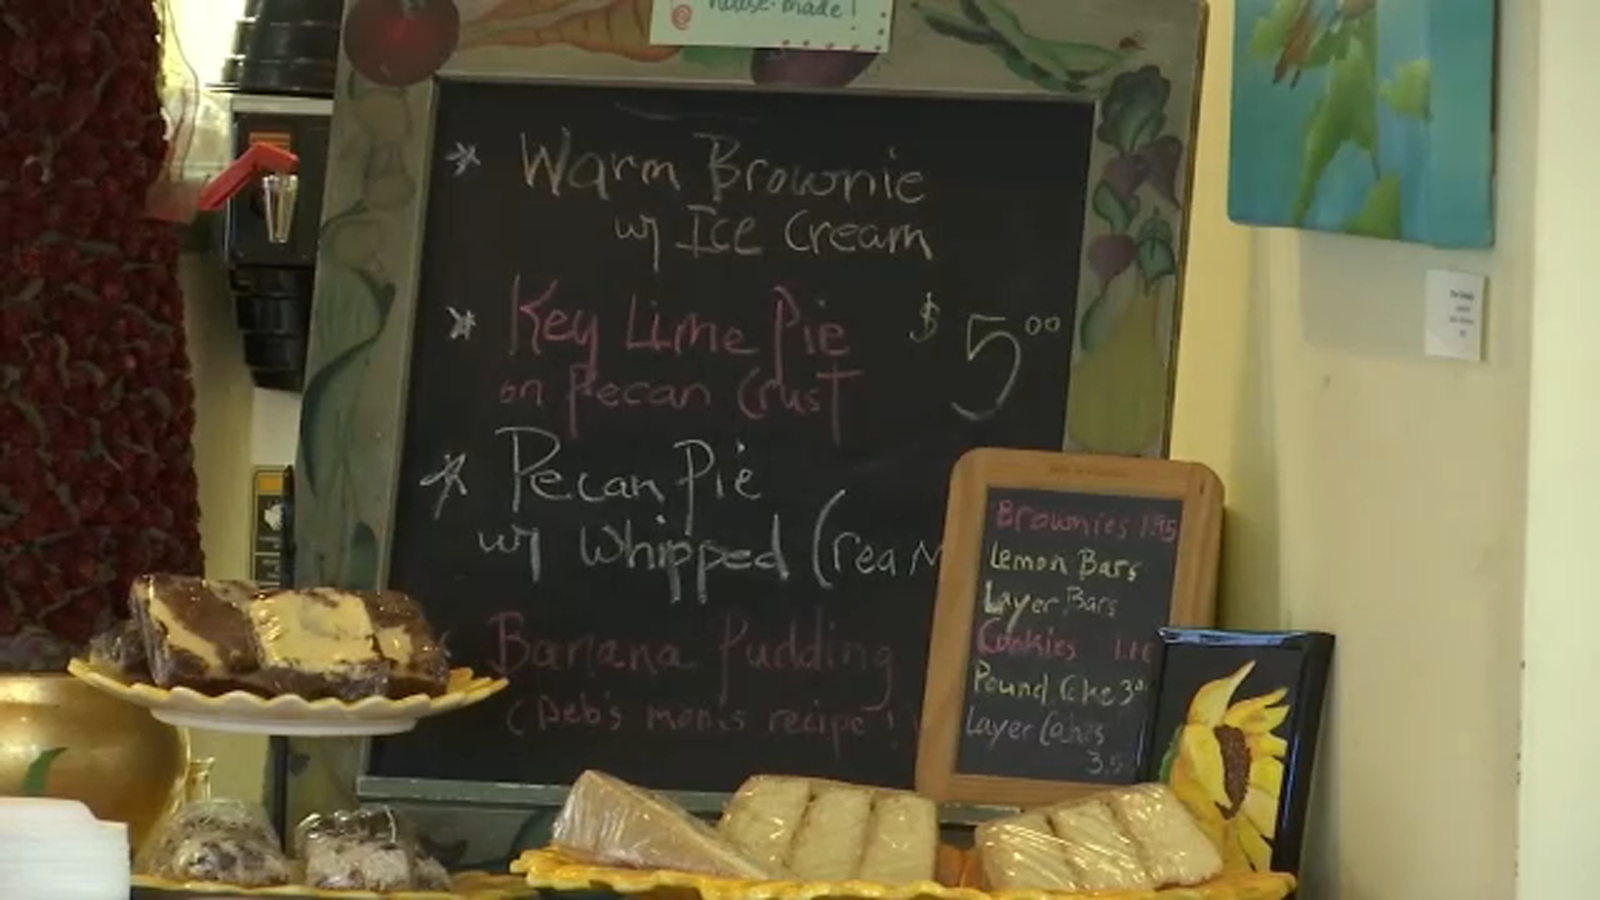 house-made!
Warm Brownie
w/ Ice Cream
Key Lime Pie
on Pecan Crust
$5.00
Pecan Pie
w/ Whipped Cream
Banana Pudding
(Deb's mom's recipe!)
Brownies 1.95
Lemon Bars
Layer Bars
Cookies
Pound Cake 3.00
Layer Cakes
3.5